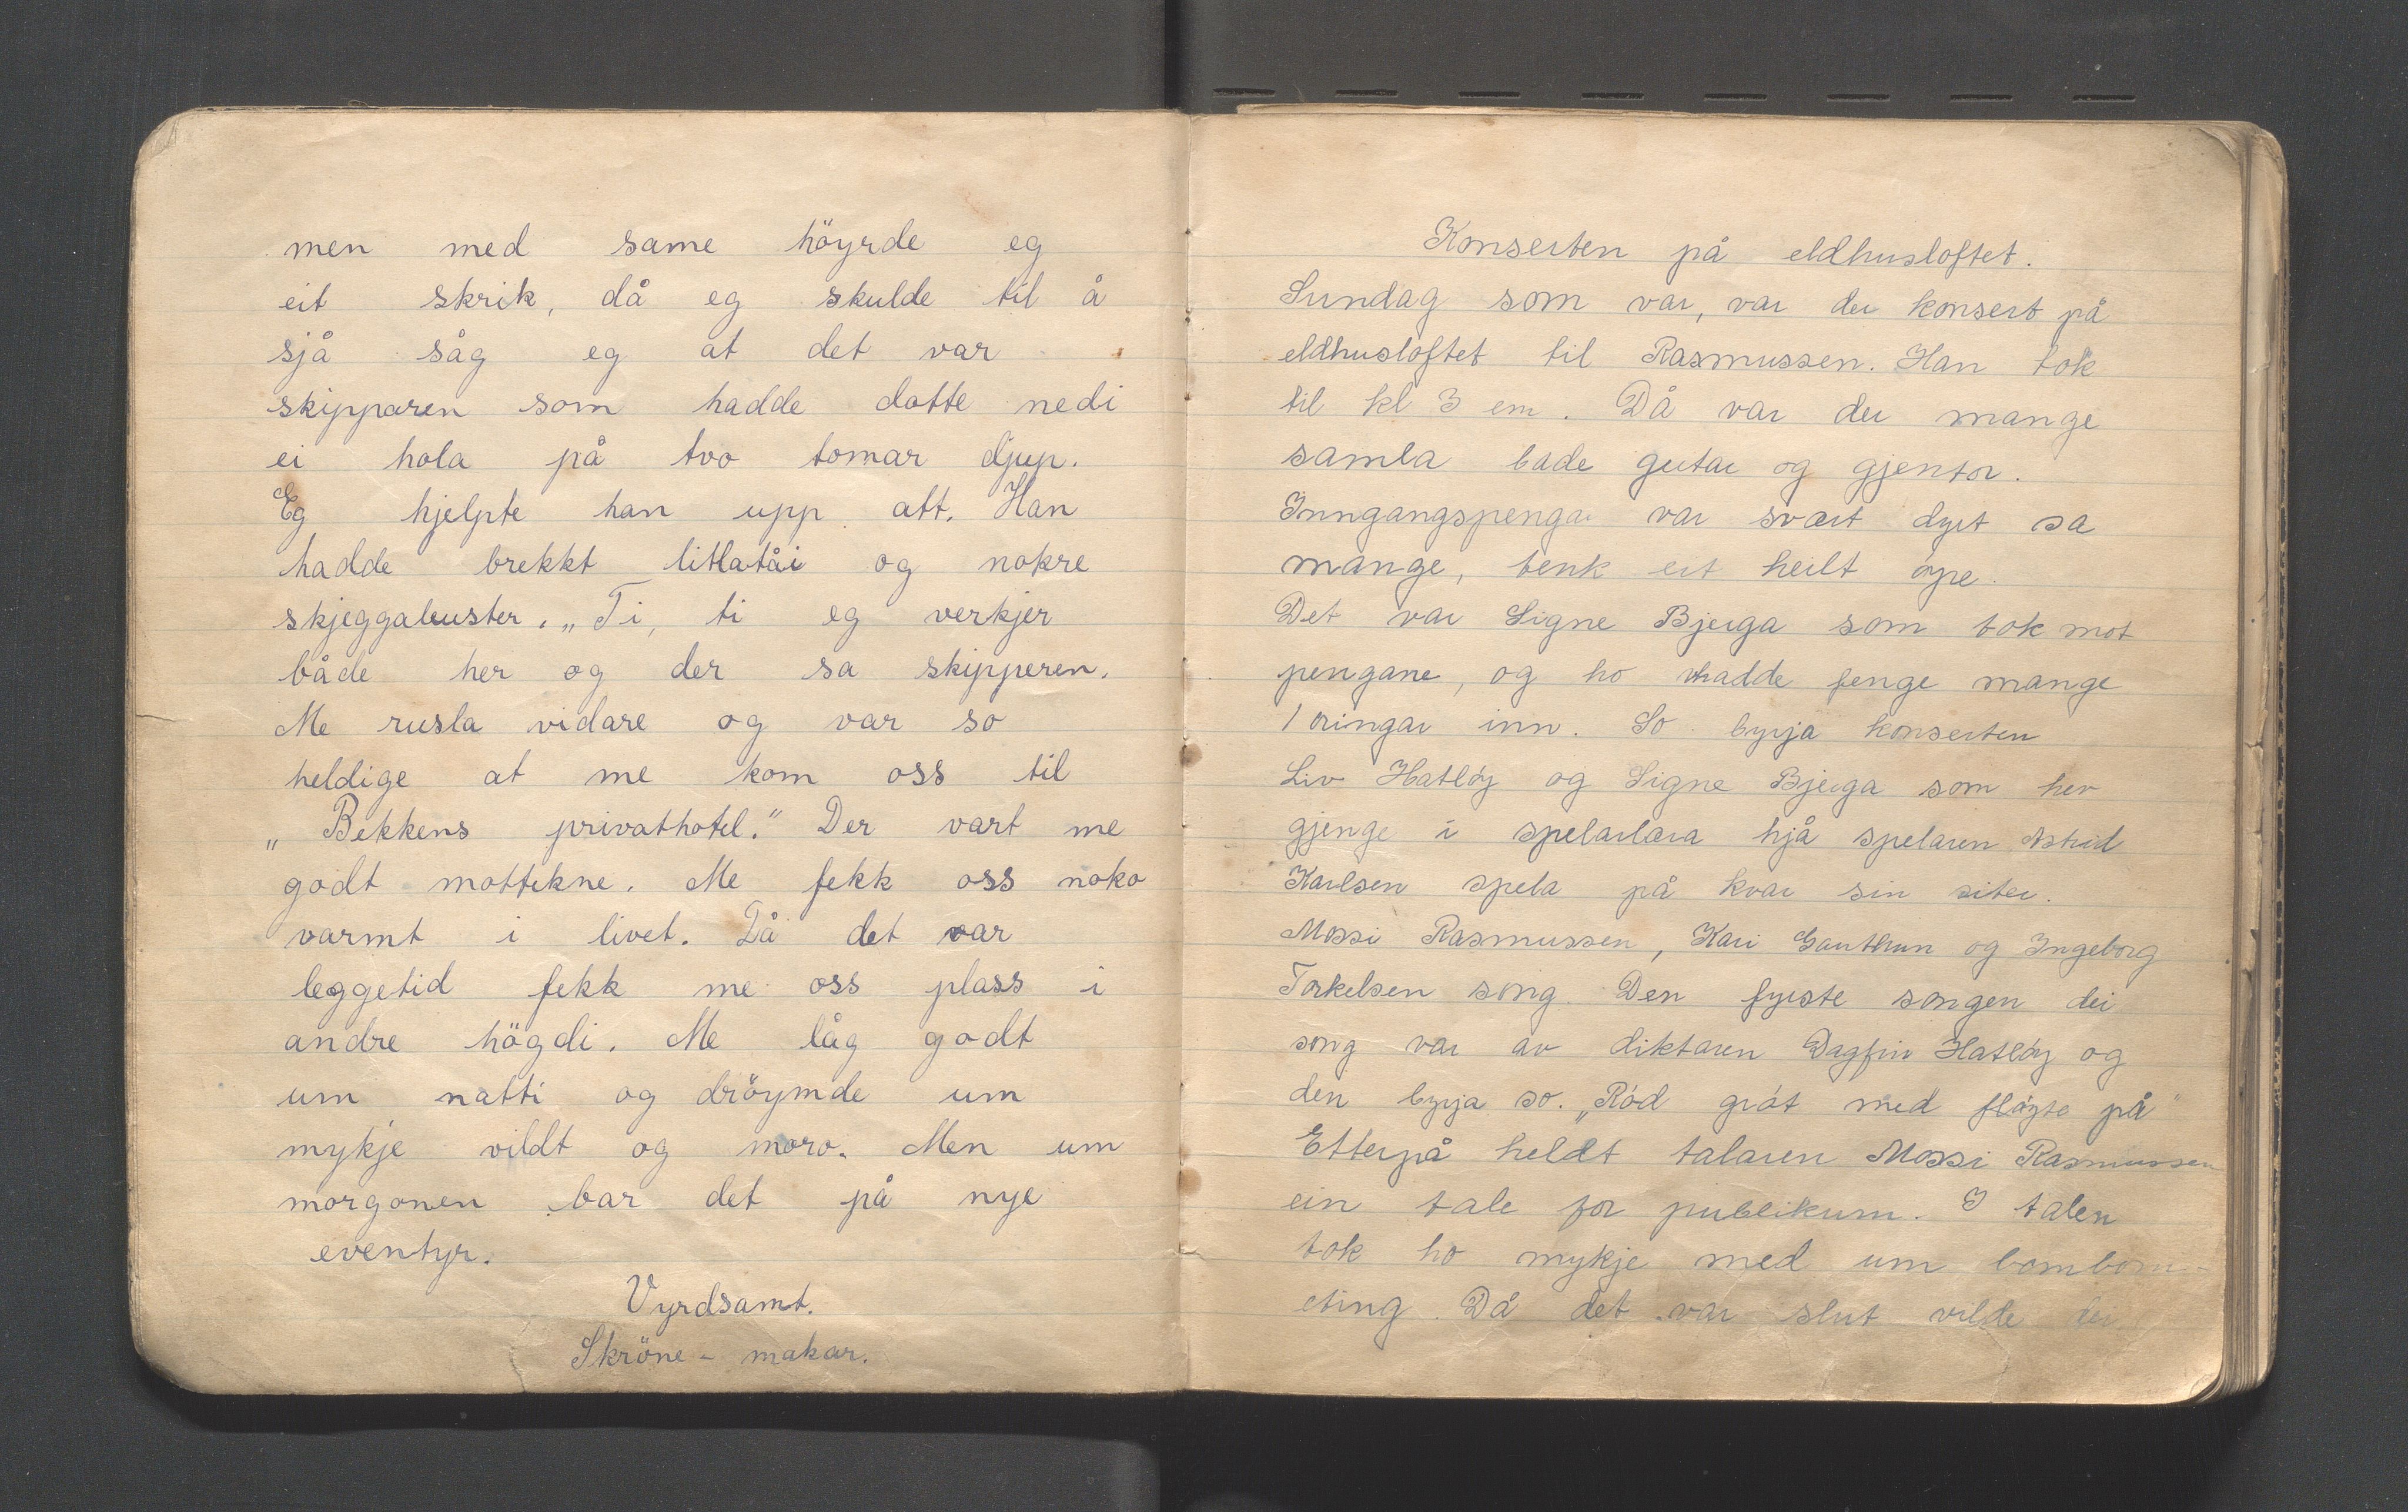 men med same höyrde eg
eit skrik, då eg skulde til å
sjå såg eg at det var
skipparen som hadde dotte nedi
ei hola på tvo tomar djup.
Eg hjelpte han upp att. Han
hadde brekkt litlatåi og nokre
skjeggabuster. „Ti, ti eg verkjer
både her og der sa skipperen.
Me rusla vidare og var so
heldige at me kom oss til
„Bekkens privathotel.“ Der vart me
godt mottekne. Me fekk oss noko
varmt i livet. Då det var
leggetid fekk me oss plass i
andre högdi. Me låg godt
um natti og dröymde um
mykje vildt og moro. Men um
morgonen bar det på nye
eventyr.
Vyrdsamt.
Skröne - makar.
Konserten på eldhusloftet.
Sundag som var, var der konsert på
eldhusloftet til Rasmussen. Han tok
til kl 3 em. Då var der mange
samla bade gutar og gjentor.
Inngangspengar var svært dyrt sa
mange, tenk eit heilt öye.
Det var Signe Bjerga som tok mot
pengane, og ho hadde fenge mange
1 öringar inn. So byrja konserten
Liv Hatlöy og Signe Bjerga som hev
gjenge i spelarlæra hjå spelaren Astrid
Karlsen spela på kvar sin siter.
Mossi Rasmussen, Kari Gauthun og Ingeborg
Torkelsen song. Den fyrste songen dei
song var av diktaren Dagfin Hatlöy og
den byrja so. „Röd gröt med flöyte på“
Etterpå heldt talaren Mossi Rasmussen
ein tale for publikum. I talen
tok ho mykje med um bombom-
eting. Då det var slut vilde dei